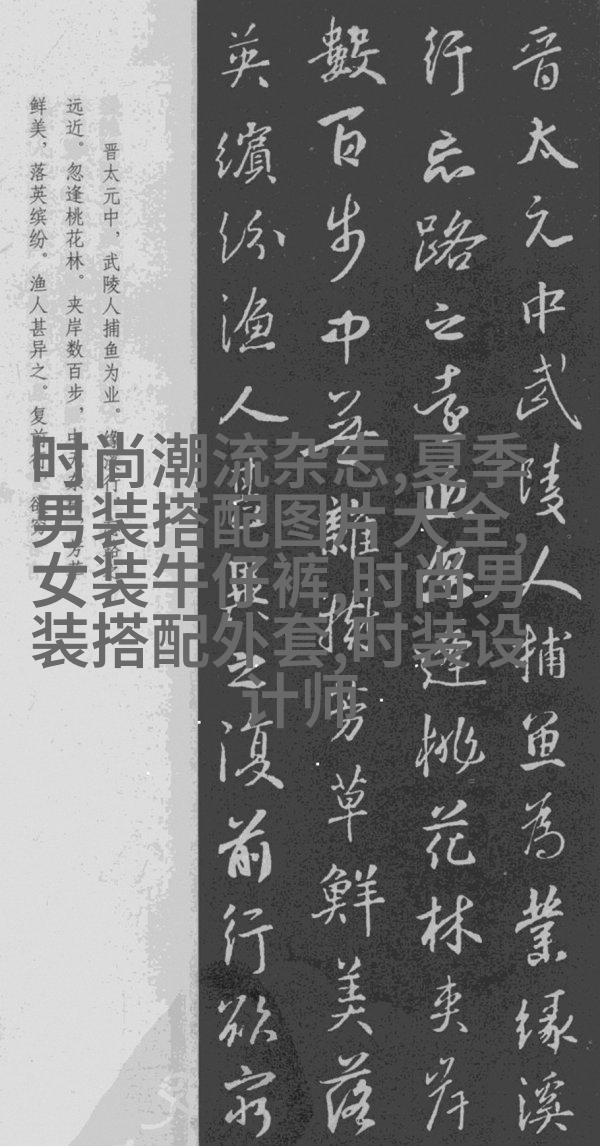 晋太元中武陵人捕魚為業緣溪
行忘路之遠近忽逢桃花林夾岸
數百步中無雜樹芳草鮮美落
英繽紛漁人甚異之復前行欲窮
晋太元中，武陵人捕鱼为业。
远近。忽逢桃花林。夹岸数百步，
鲜美，落英缤纷。渔人甚异之。复前
时尚潮流杂志,夏季
男装搭配图片大全,
女装牛仔裤,时尚男
装搭配外套,时装设
计师